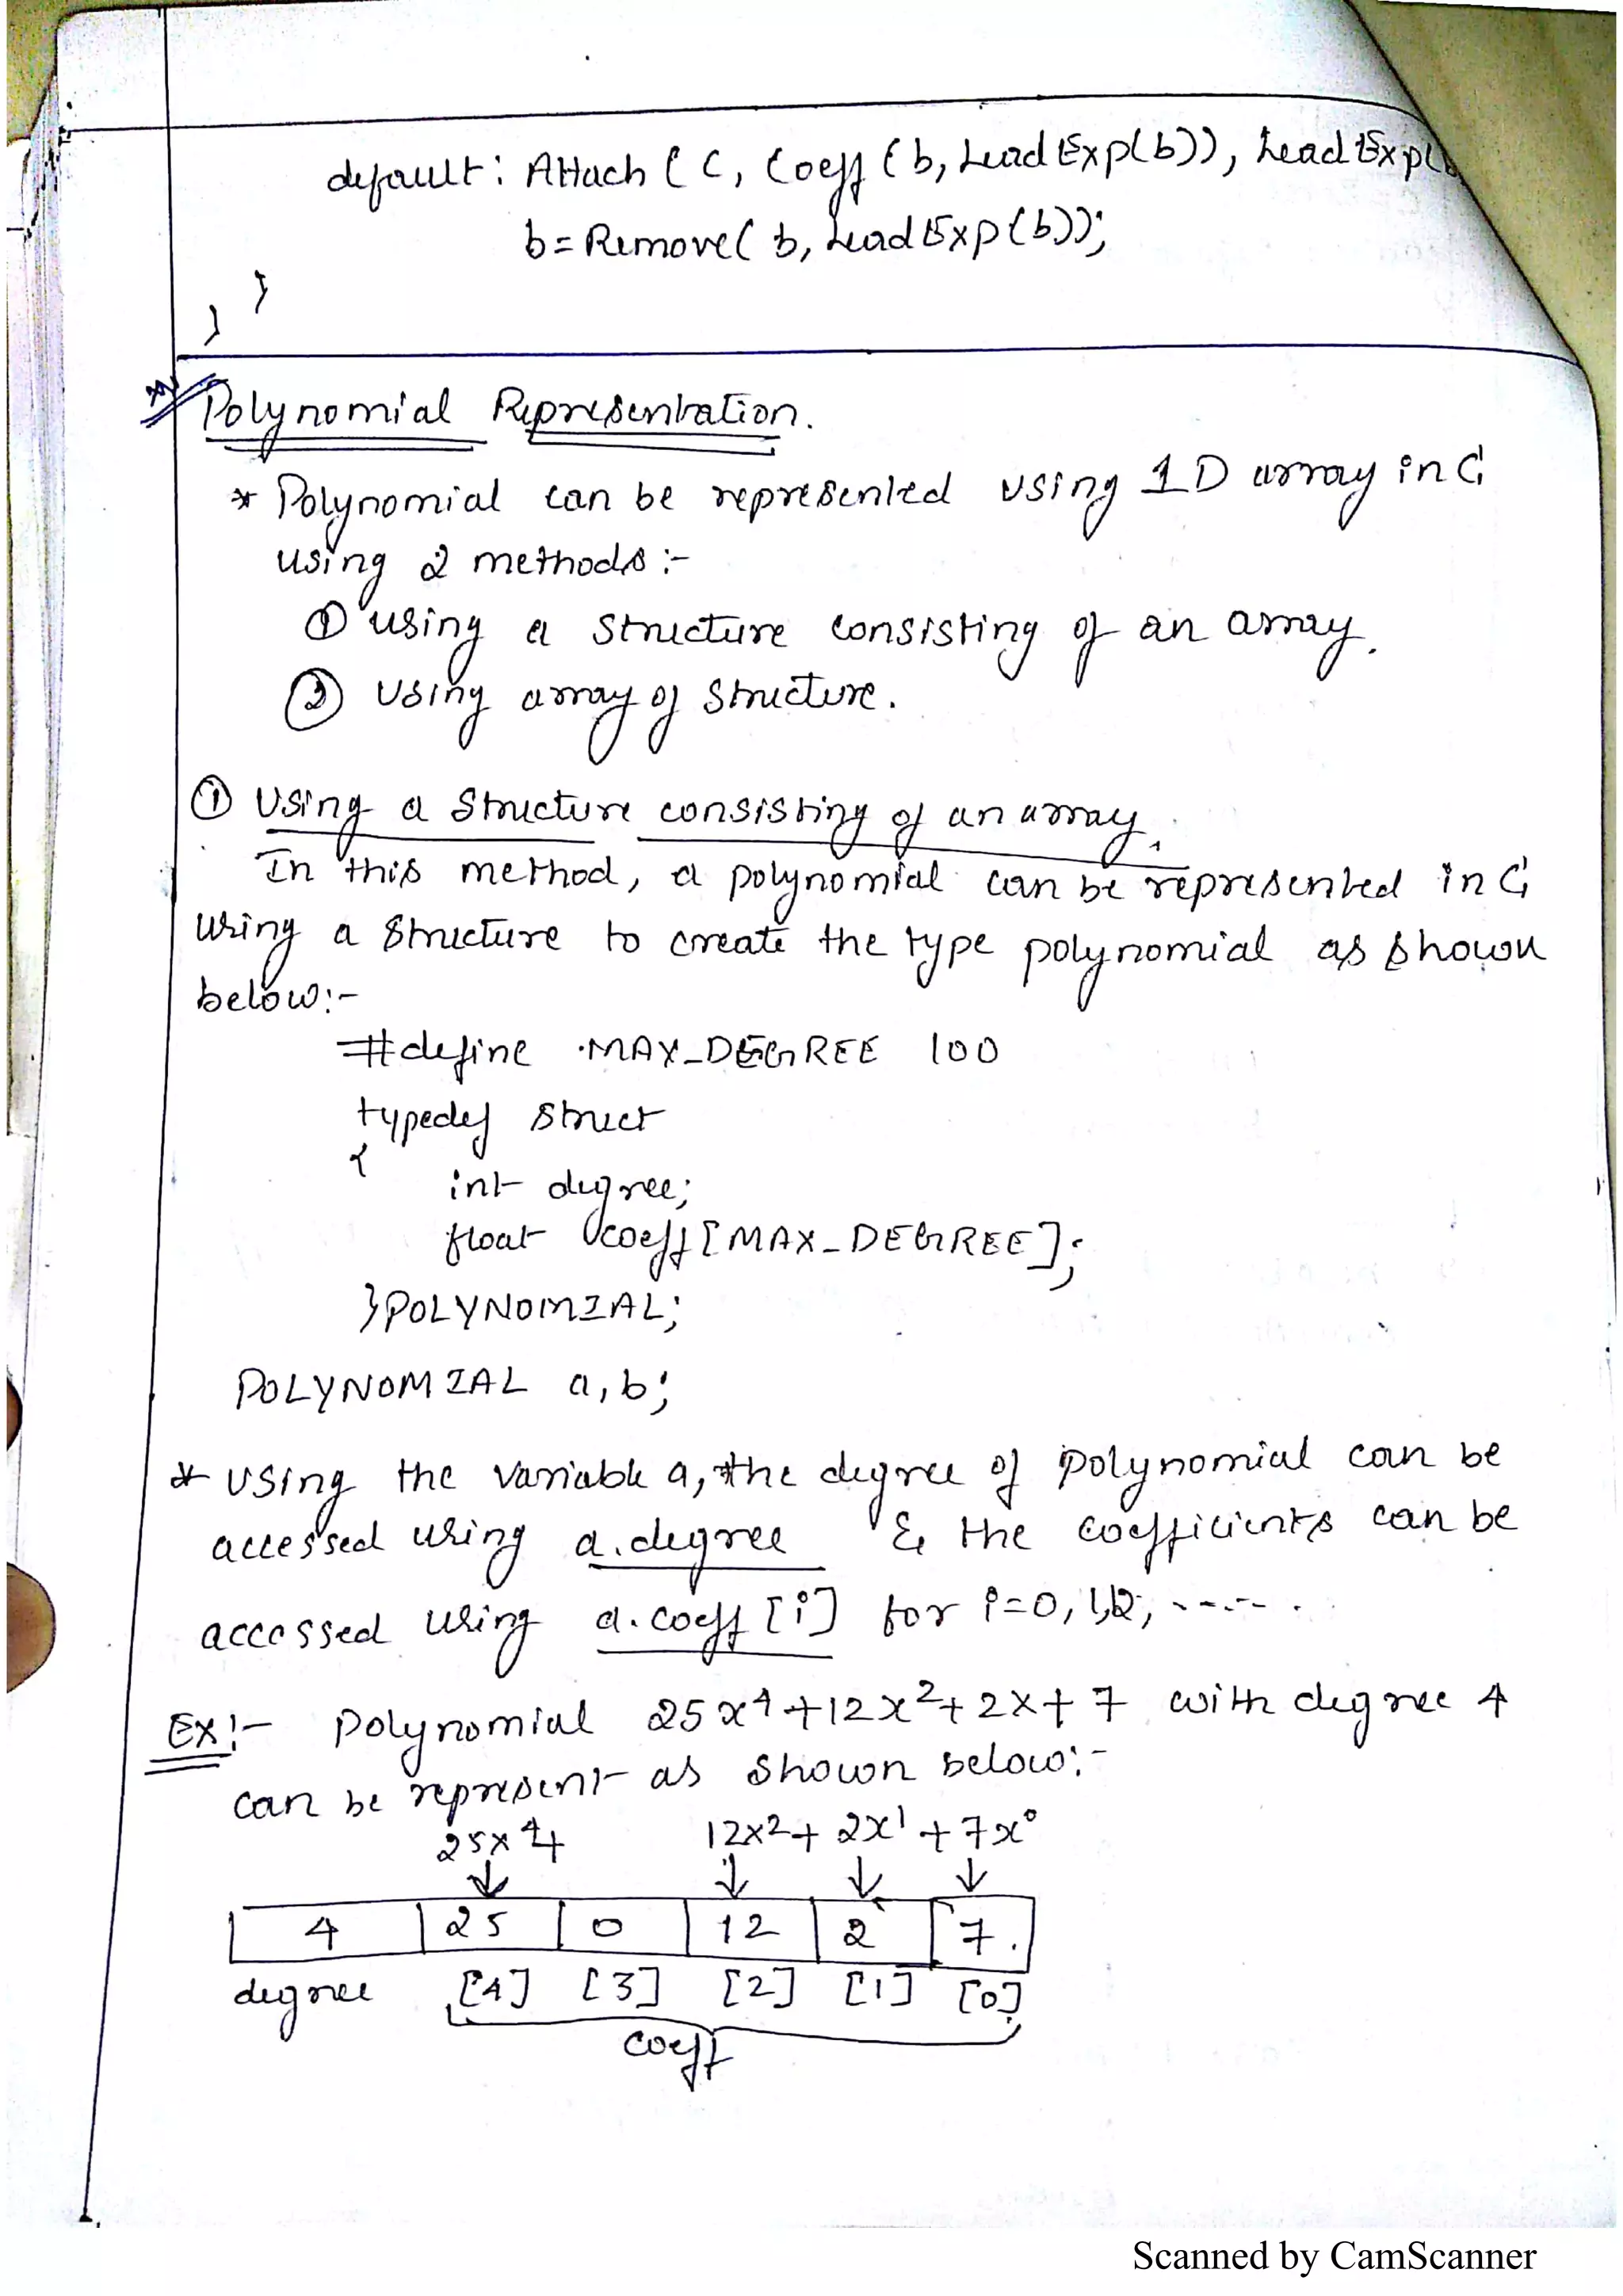 default: Attach (C, Coeff (b, LeadExp(b)), LeadExp(
b=Remove( b, LeadExp(b));
}
}
Polynomial Representation.
* Polynomial can be represented using 1D array in C
using 2 methods :-
① using a structure consisting of an array.
② using array of structure.
① Using a structure consisting of an array.
In this method, a polynomial can be represented in C
using a structure to create the type polynomial as shown
below:-
#define MAX_DEGREE 100
typedef struct
{
int degree;
float coeff[MAX_DEGREE];
}POLYNOMIAL;
POLYNOMIAL a, b;
* Using the variable a, the degree of polynomial can be
accessed using a.degree & the coefficients can be
accessed using a.coeff[i] for i=0,1,2, ------.
Ex:- Polynomial 25x⁴+12x²+2x+7 with degree 4
can be represent as shown below:-
25x⁴+ 12x²+ 2x¹+7x⁰
↓ ↓ ↓ ↓
4 25 0 12 2 7.
degree [4] [3] [2] [1] [0]
coeff
Scanned by CamScanner